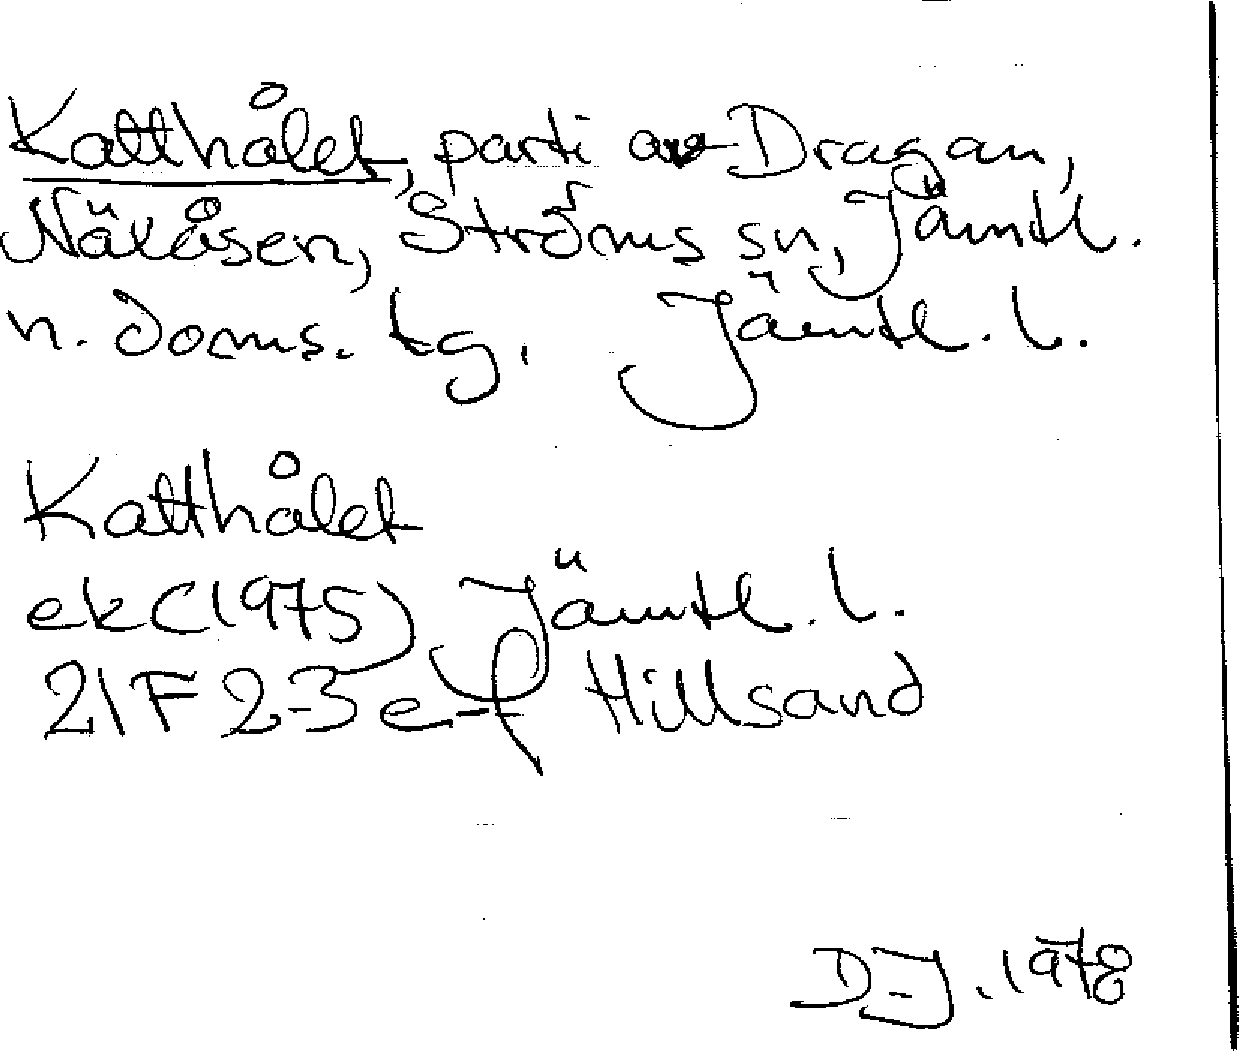 Katthålet, parti av Dragan,
Näkåsen, Ströms sn, Jämtl.
n. doms. tg. Jämtl. l.
Katthålet
ek (1975) Jämtl. l.
21F 2-3 e-f Hillsand
D-J. 1978